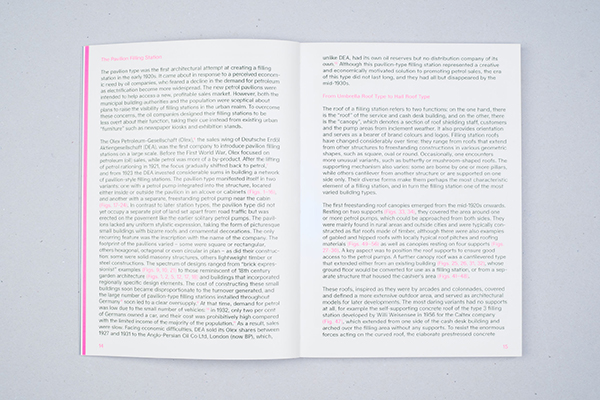 The Pavilion Filling Station
The pavilion type was the first architectural attempt at creating a filling
station in the early 1920s. It came about in response to a perceived econom-
ic need by oil companies, who feared a decline in the demand for petroleum
as electrification became more widespread. The new petrol pavilions were
intended to help access a new, profitable sales market. However, both the
municipal building authorities and the population were sceptical about
plans to raise the visibility of filling stations in the urban realm. To overcome
these concerns, the oil companies designed their filling stations to be
less overt about their function, taking their cue instead from existing urban
"furniture" such as newspaper kiosks and exhibition stands.
The Olex Petroleum-Gesellschaft (Olex), the sales wing of Deutsche Erdöl
Aktiengesellschaft (DEA), was the first company to introduce pavilion filling
stations on a large scale. Before the First World War, Olex focused on
petroleum (oil) sales, while petrol was more of a by-product. After the lifting
of petrol rationing in 1921, the focus gradually shifted back to petrol,
and from 1921 the DEA invested considerable sums in building a network
of pavilion style filling stations. The pavilion type manifested itself in two
variants: one with a petrol pump integrated into the structure, located
either inside or outside the pavilion in an alcove or cabinets
and another with a separate, freestanding petrol pump near the cabin
In contrast to later station types, the pavilion type did not
yet occupy a separate plot of land set apart from road traffic but was
erected on the pavement like the earlier solitary petrol pumps. The pavil-
ions lacked any uniform stylistic expression, taking the form of picturesque
small buildings with bizarre roofs and ornamental decorations. The only
recurring feature was the inscription with the name of the company. The
footprint of the pavilions varied – some were square or rectangular,
others hexagonal, octagonal or even circular in plan – as did their construc-
tion: some were solid masonry structures, others lightweight timber or
steel constructions. The spectrum of designs ranged from "brick expres-
sionist" examples to those reminiscent of 18th century
garden architecture and buildings that incorporated
regionally specific design elements. The cost of constructing these small
buildings soon became disproportionate to the turnover generated, and
the large number of pavilion type filling stations installed throughout
Germany soon led to a clear oversupply. At that time, demand for petrol
was low due to the small number of vehicles: in 1932, only two per cent
of Germans owned a car, and their cost was prohibitively high compared
with the limited income of the majority of the population. As a result, sales
were slow. Facing economic difficulties, DEA sold its Olex shares between
1927 and 1931 to the Anglo-Persian Oil Co Ltd, London (now BP), which,
unlike DEA, had its own oil reserves but no distribution company of its
own. Although this pavilion-type filling station represented a creative
and economically motivated solution to promoting petrol sales, the era
of this type did not last long, and they had all but disappeared by the
mid-1930s.
From Umbrella Roof Type to Half-Roof Type
The roof of a filling station refers to two functions: on the one hand, there
is the "roof" of the service and cash desk building, and on the other, there
is the "canopy", which denotes a section of roof shielding staff, customers
and the pump areas from inclement weather. It also provides orientation
and serves as a bearer of brand colours and logos. Filling station roofs
have changed considerably over time: they range from roofs that extend
from other structures to freestanding constructions in various geometric
shapes, such as square, oval or round. Occasionally, one encounters
more unusual variants, such as butterfly or mushroom-shaped roofs. The
supporting mechanism also varies: some are borne by one or more pillars,
while others cantilever from another structure or are supported on one
side only. Their diverse forms make them perhaps the most characteristic
element of a filling station, and in turn the filling station one of the most
varied building types.
The first freestanding roof canopies emerged from the mid-1920s onwards.
Resting on two supports they covered the area around one
or more petrol pumps, which could be approached from both sides. They
were mainly found in rural areas and outside cities and were typically con-
structed as flat roofs made of timber, although there were also examples
of gabled and hipped roofs with locally typical roof pitches and roofing
materials as well as canopies resting on four supports
A key aspect was to position the roof supports to ensure good
access to the petrol pumps. A further canopy roof was a cantilevered type
that extended either from an existing building whose
ground floor would be converted for use as a filling station, or from a sep-
arate structure that housed the cashier's area
These roofs, inspired as they were by arcades and colonnades, covered
and defined a more extensive outdoor area, and served as architectural
models for later developments. The most daring variants had no supports
at all, for example the self-supporting concrete roof of the type 3 filling
station developed by Willi Weinemann in 1956 for the Caltex company
which extended from one side of the cash desk building and
arched over the filling area without any supports. To resist the enormous
forces acting on the curved roof, the elaborate prestressed concrete